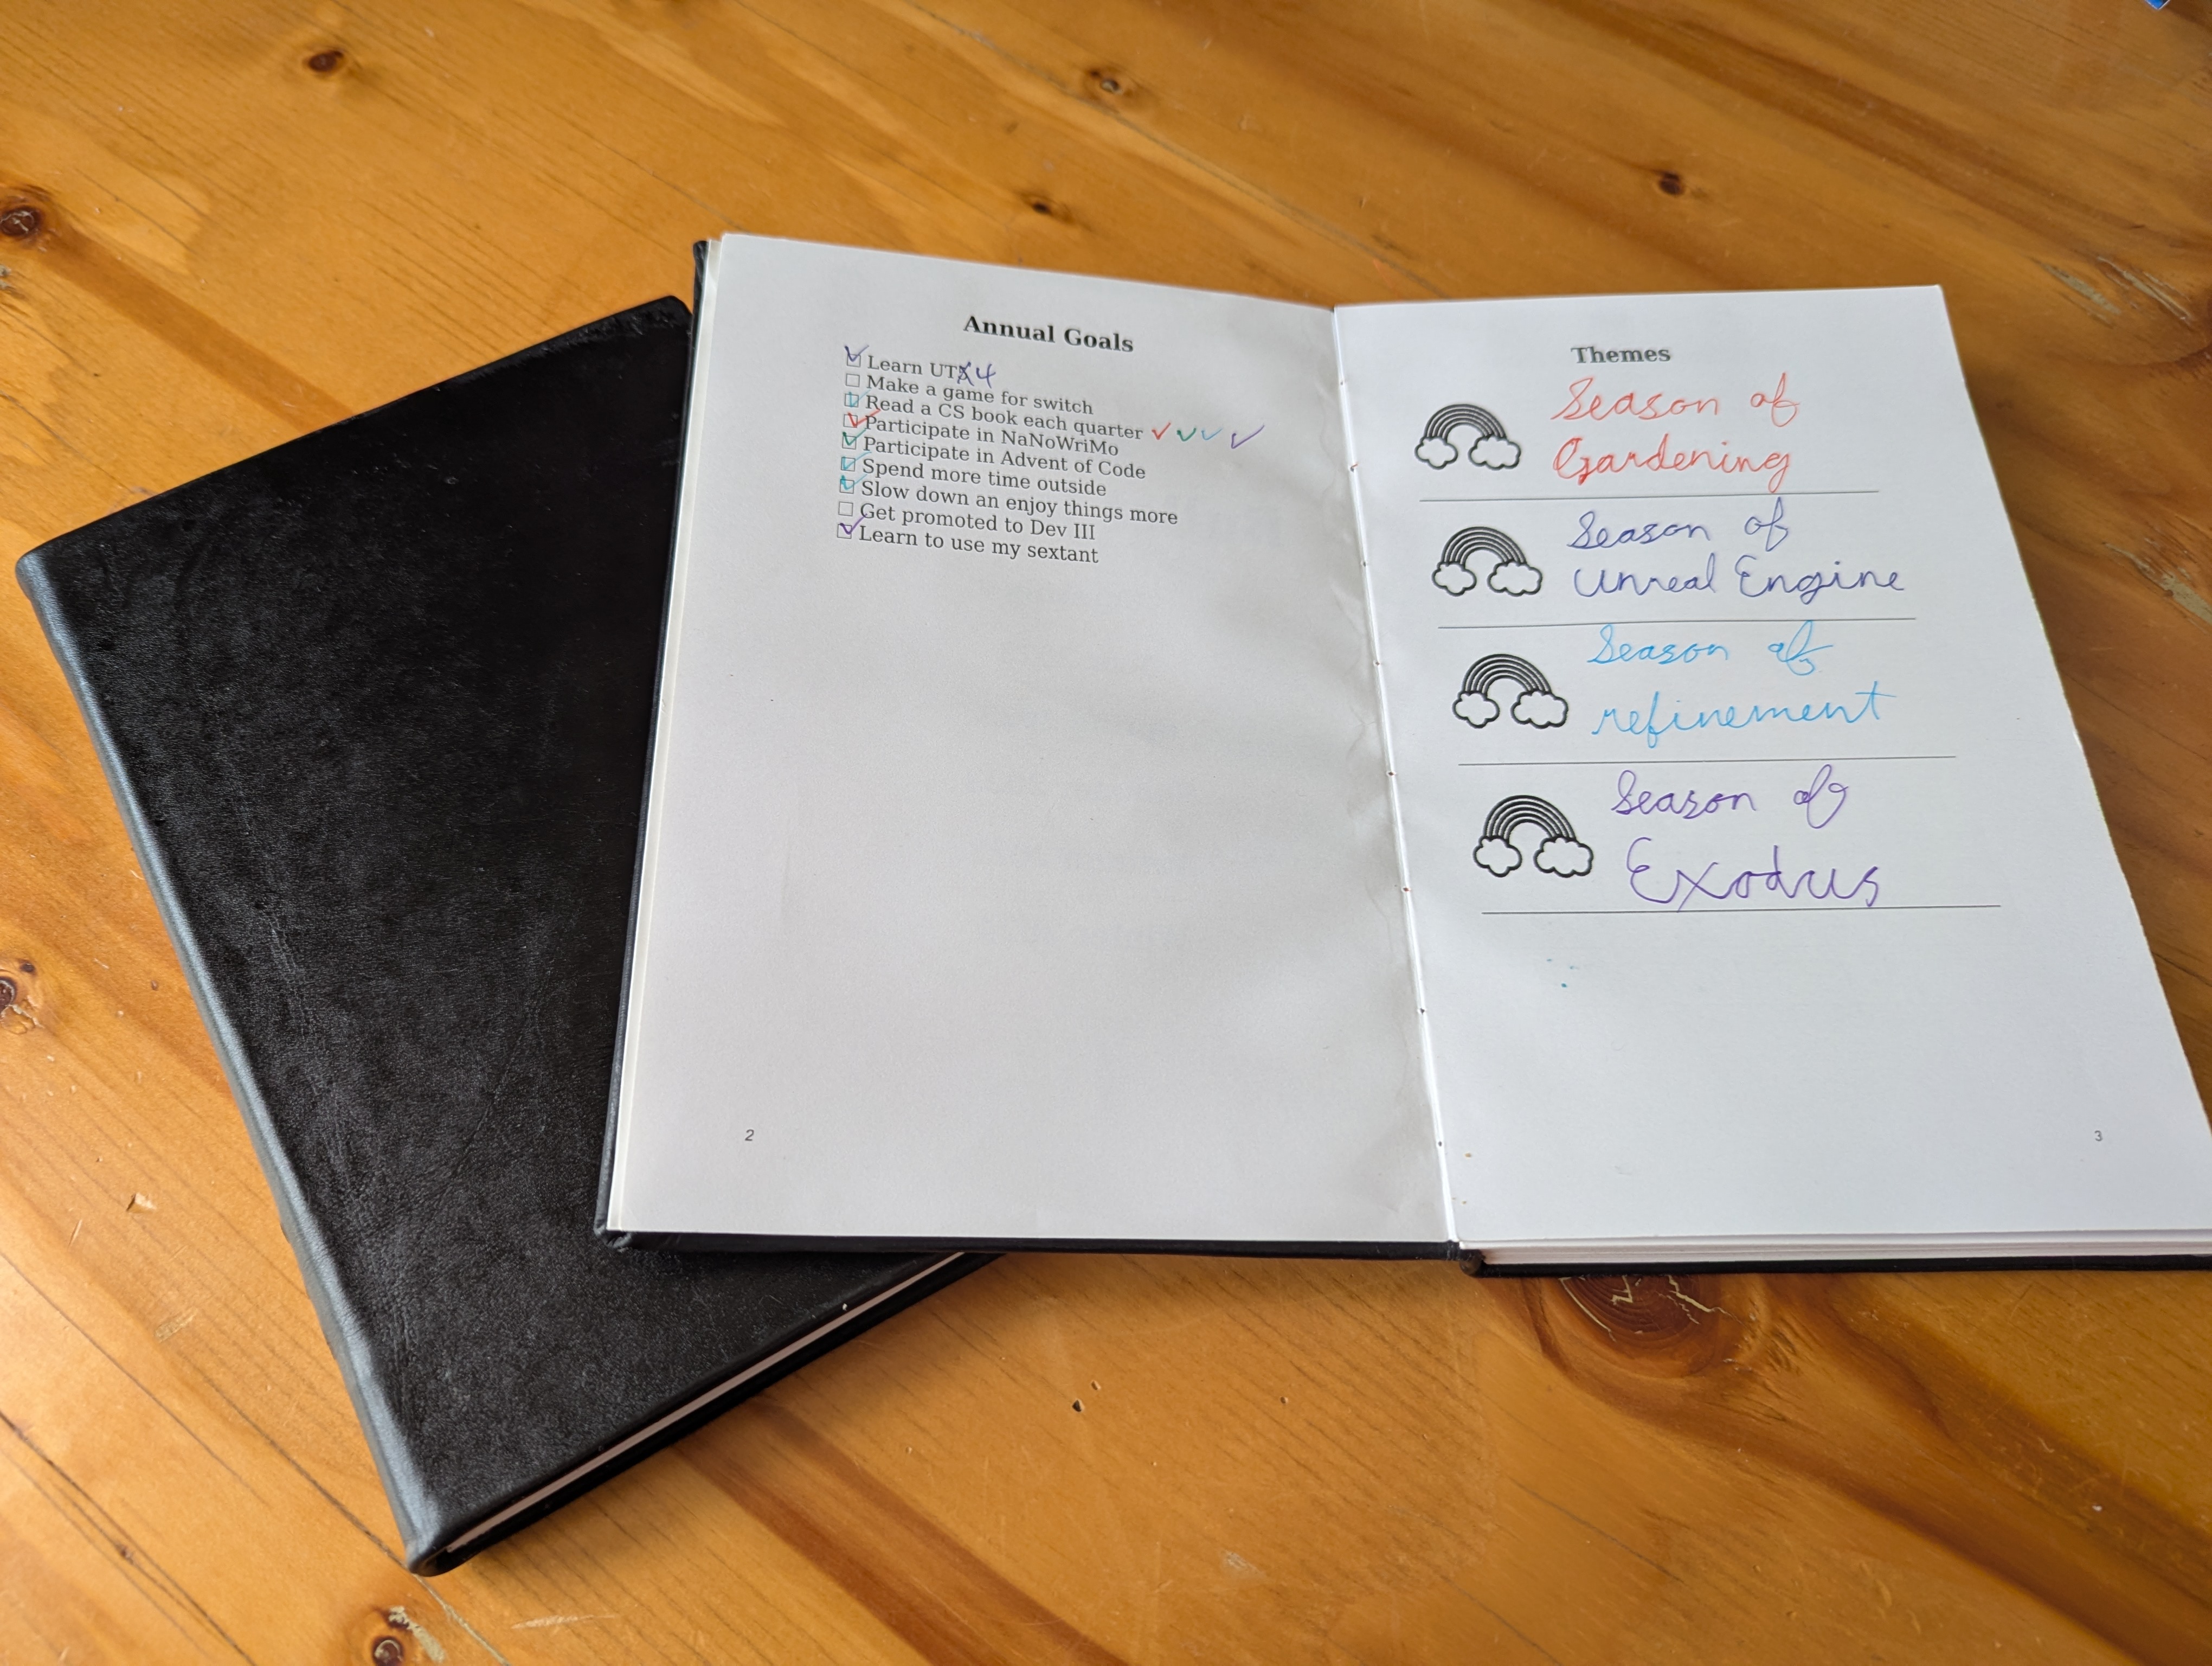 Annual Goals
Learn UTX4
Make a game for switch
Read a CS book each quarter
Participate in NaNoWriMo
Participate in Advent of Code
Spend more time outside
Slow down an enjoy things more
Get promoted to Dev III
Learn to use my sextant
2
Themes
Season of
Gardening
Season of
Unreal Engine
Season of
refinement
Season of
Exodus
3